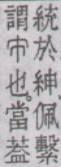 統於紳佩繫
謂帀也。當葢